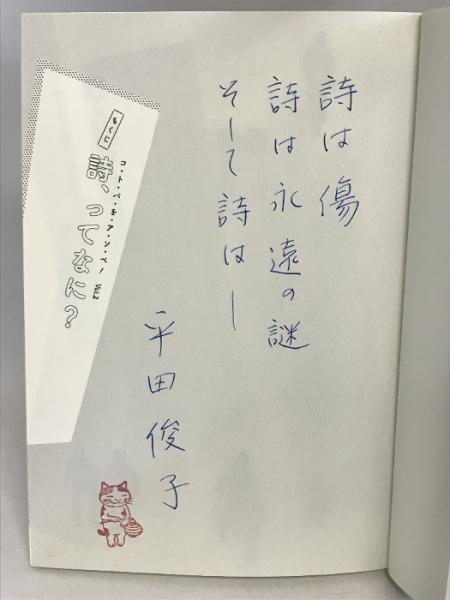 詩は傷
詩は永遠の謎
そして詩は—
平田俊子
もくじ
コ・ト・バ・を・ア・ソ・ベ・！ Vol.2
詩、ってなに？